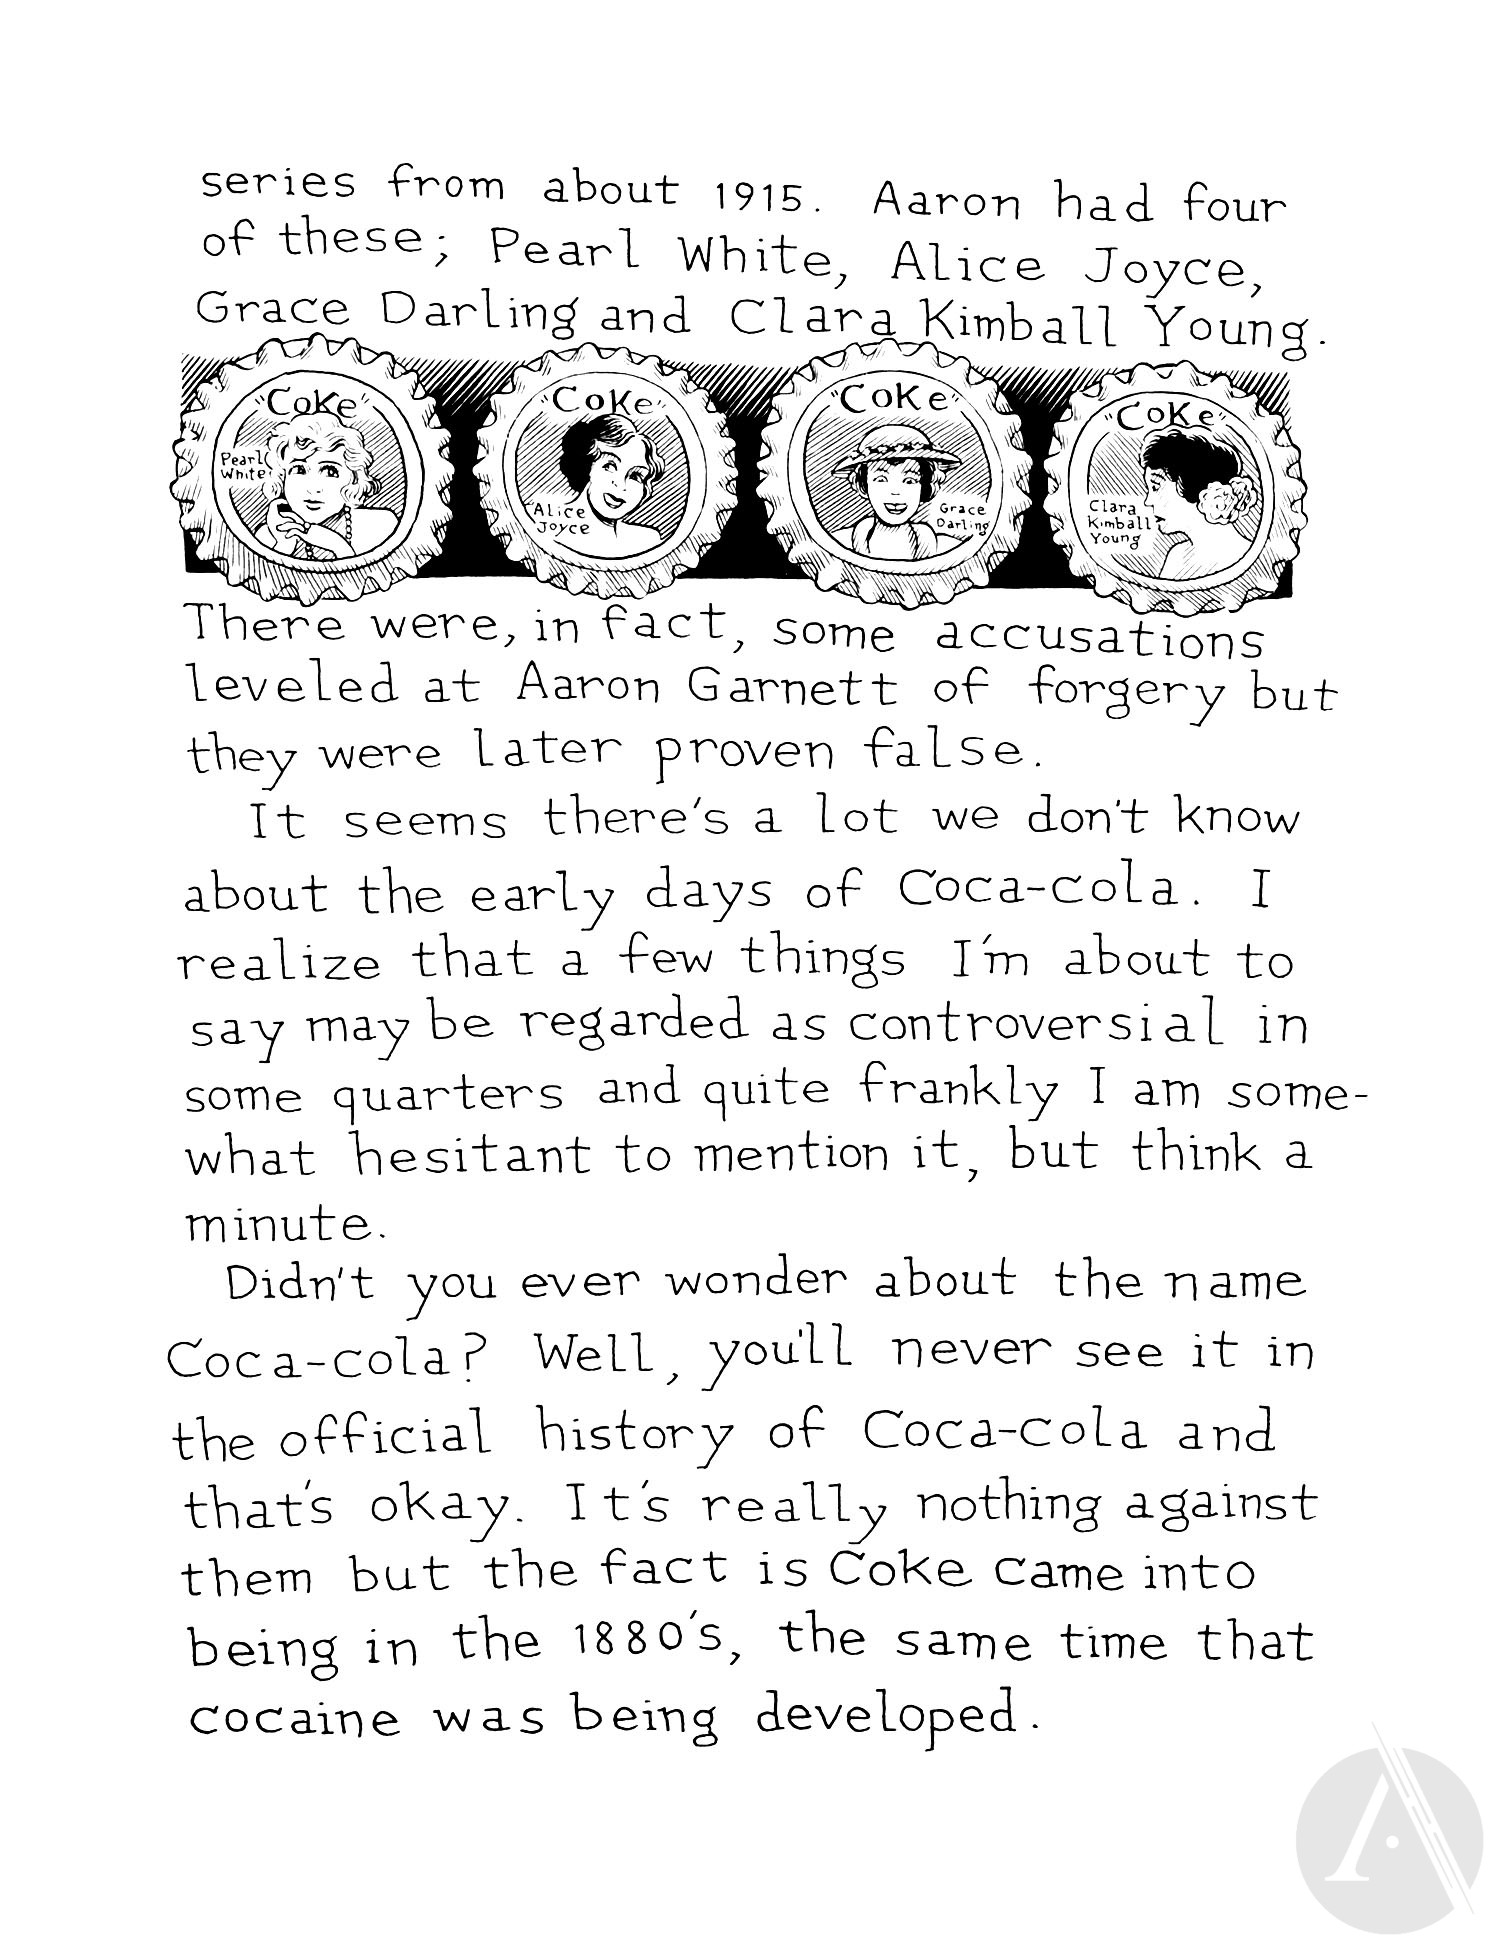 series from about 1915. Aaron had four
of these; Pearl White, Alice Joyce,
Grace Darling and Clara Kimball Young.
"Coke"
Pearl
White
"Coke"
Alice
Joyce
"Coke"
Grace
Darling
"Coke"
Clara
Kimball
Young
There were, in fact, some accusations
leveled at Aaron Garnett of forgery but
they were later proven false.
It seems there's a lot we don't know
about the early days of Coca-cola. I
realize that a few things I'm about to
say may be regarded as controversial in
some quarters and quite frankly I am some-
what hesitant to mention it, but think a
minute.
Didn't you ever wonder about the name
Coca-cola? Well, you'll never see it in
the official history of Coca-cola and
that's okay. It's really nothing against
them but the fact is Coke came into
being in the 1880's, the same time that
cocaine was being developed.